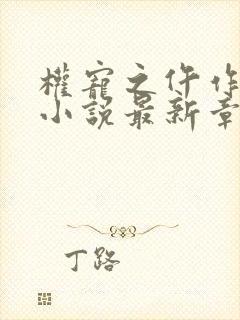 權寵之仵作
小說最新章
丁路